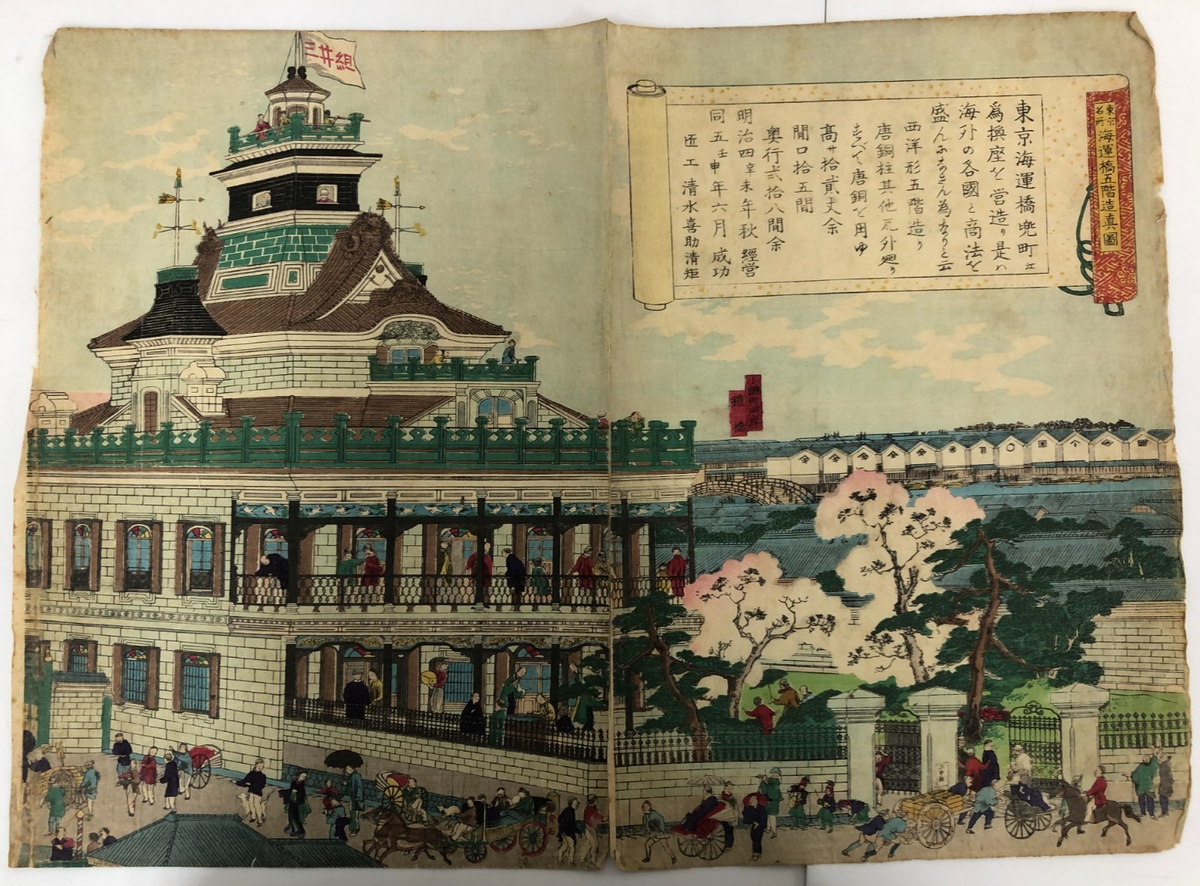 東京名所 海運橋五階造真圖
東京海運橋兜町江
為換座を営造り是ハ
海外の各國と商法を
盛んになさん為なりと云
西洋形五階造り
唐銅柱其他瓦外廻り
すべて唐銅を用ゆ
高サ拾貳丈余
間口拾五間
奥行弐拾八間余
明治四辛未年秋経営
同五壬申年六月成功
匠工 清水喜助清矩
三井組